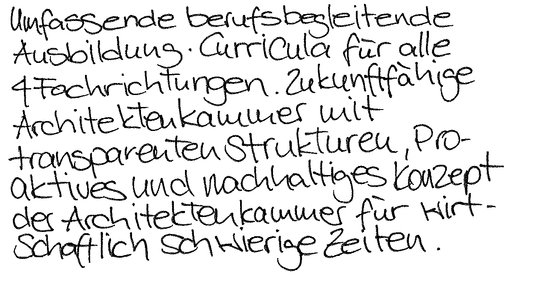 Umfassende berufsbegleitende
Ausbildung. Curricula für alle
4 Fachrichtungen. Zukunftfähige
Architektenkammer mit
transparenten Strukturen, Pro-
aktives und nachhaltiges Konzept
der Architektenkammer für wirt-
schaftlich schwierige Zeiten.